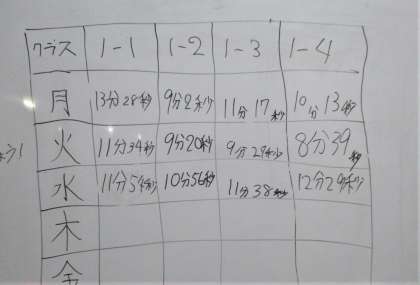 クラス 1-1 1-2 1-3 1-4
月 13分28秒 9分2秒 11分17秒 10分13秒
火 11分34秒 9分20秒 9分29秒 8分39秒
水 11分54秒 10分56秒 11分38秒 12分29秒
木
金